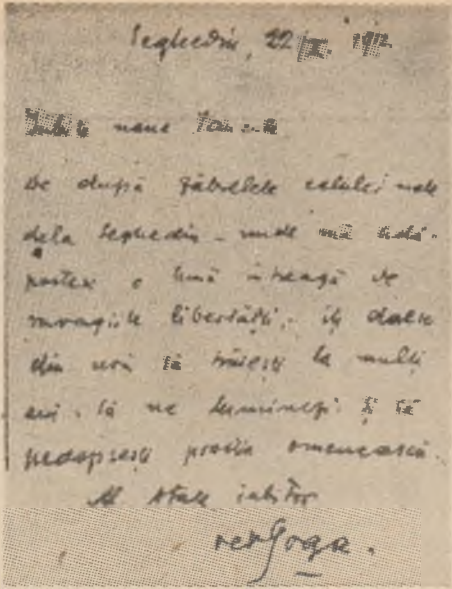 Seghedin, 22 X. 1912
Iubite nene Iancule
De după zăbrelele celulei mele
dela Seghedin - unde mă adă-
postesc o lună întreagă de
miragiile libertății, - iți
din nou să trăiești la mulți
ani, să ne luminezi și să
pedepsești prostia omenească.
Al tău iubitor
Goga.